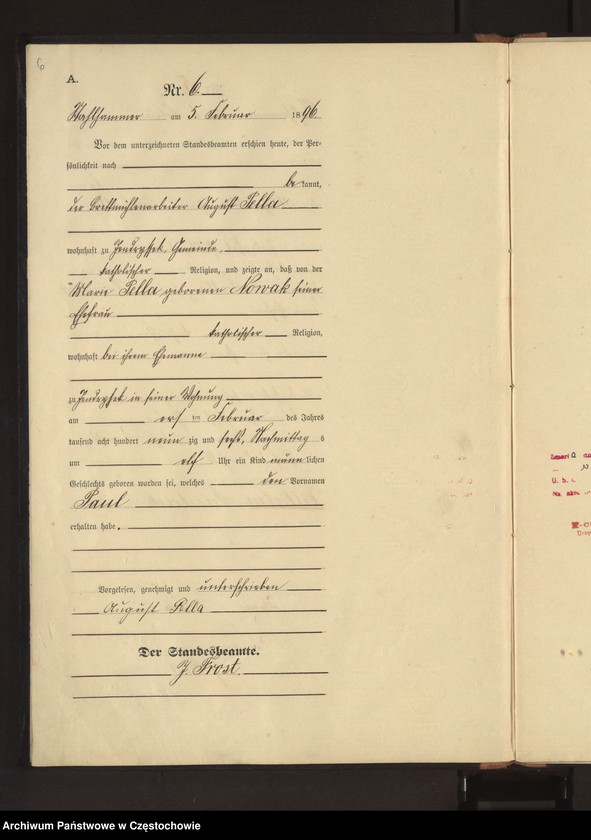 6
A.
Nr. 6.
am 5. Februar 1896.
Vor dem unterzeichneten Standesbeamten erschien heute, der Per-
sönlichkeit nach
be kannt,
der Brettmühlenarbeiter August Pella
wohnhaft zu Gemeinde
katholischer Religion, und zeigte an, daß von der
Marie Pella geborenen Nowak seiner
Ehefrau
katholischer Religion,
wohnhaft bei ihrem Ehemanne
zu in seiner Wohnung
am ten Februar des Jahres
tausend acht hundert neun zig und sechs, Nachmittag s
um elf Uhr ein Kind männ lichen
Geschlechts geboren worden sei, welches den Vornamen
Paul
erhalten habe.
Vorgelesen, genehmigt und unterschrieben
August Pella
Der Standesbeamte.
J. Prost.
Archiwum Państwowe w Częstochowie